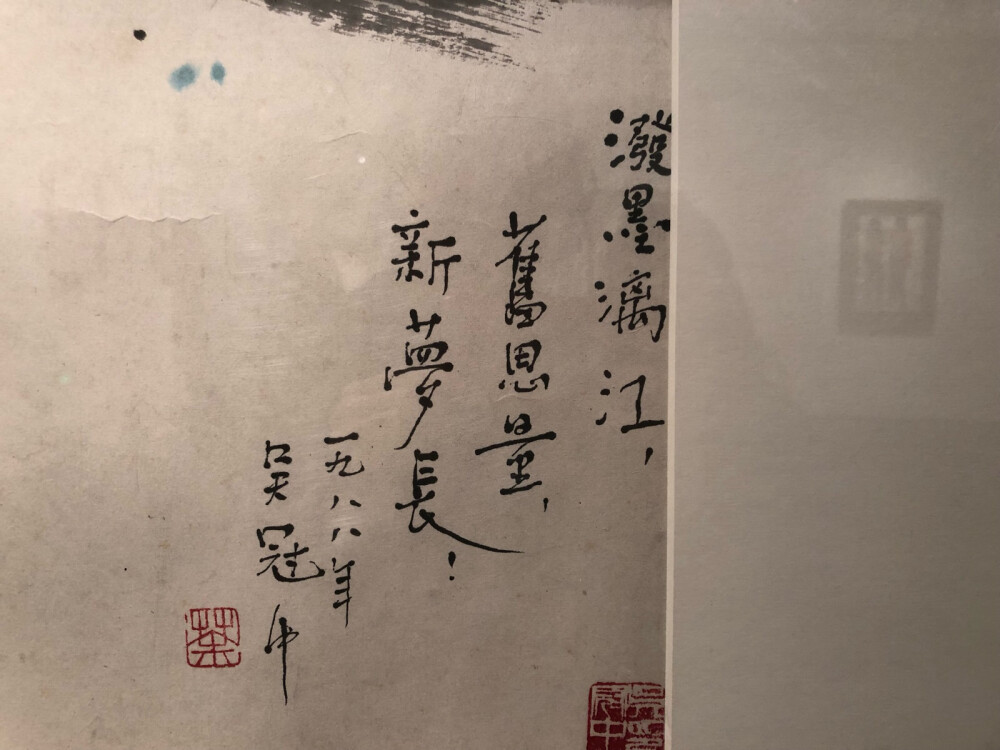 潑墨漓江，
舊思量，
新夢長！
一九八八年
吳冠中
荼